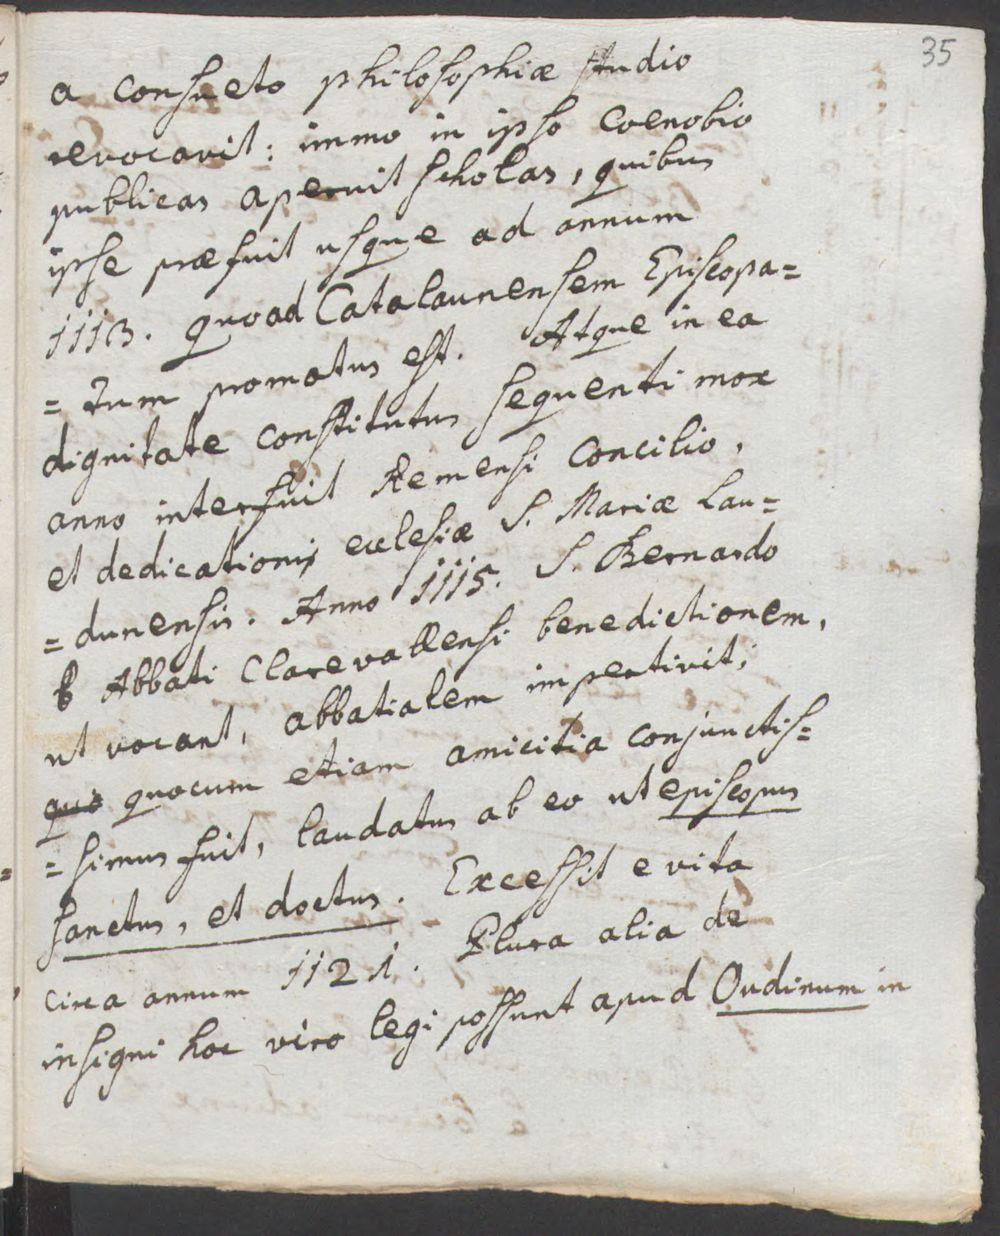 35
a consueto philosophiæ studio
revocavit: immo in ipso Coenobio
publicas aperuit scholas, quibus
ipse præfuit usque ad annum
1113. quo ad Catalaunensem Episcopa=
=tum promotus est. Atque in ea
dignitate constitutus sequenti mox
anno interfuit Remensi Concilio,
et dedicationi ecclesiæ S. Mariæ Lau=
=dunensis. Anno 1115. S. Bernardo
Abbati Clarevallensi benedictionem,
ut vocant, abbatialem impertivit;
quo quocum etiam amicitia conjunctis=
=simus fuit, laudatus ab eo ut episcopus
sanctus, et doctus. Excessit e vita
circa annum 1121. Plura alia de
insigni hoc viro legi possunt apud Oudinum in